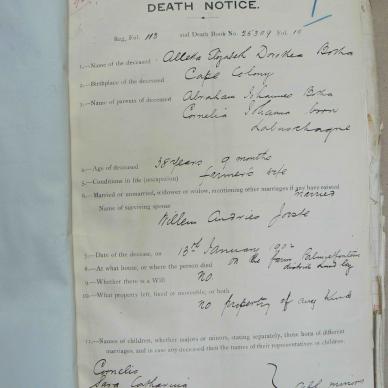 DEATH NOTICE.
Reg. Fol. 113 and Death Book No. 25309 Fol. 10
1.—Name of the deceased Aletta Elizabeth Dorothea Botha
2.—Birthplace of the deceased Cape Colony
3.—Names of parents of deceased Abraham Johannes Botha
Cornelia Johanna born
Labuschagne
4.—Age of deceased 38 years 9 months
5.—Conditions in life (occupation) farmer's wife
6.—Married or unmarried, widower or widow, mentioning other marriages if any have existed married
Name of surviving spouse
Willem Andries Joste
7.—Date of the decease, on 13th January 1902
8.—At what house, or where the person died on the farm
district
9.—Whether there is a Will No
10.—What property left, fixed or moveable, or both
no property of any kind
11.—Names of children, whether majors or minors, stating separately, those born of different
marriages, and in case any deceased then the names of their representatives or children.
Cornelis
Sara Catharina
All minors